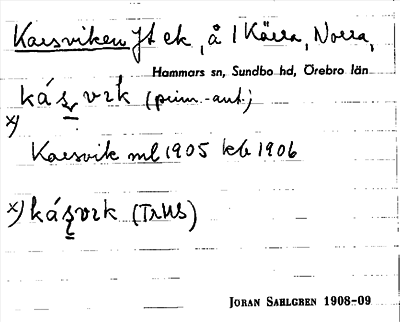 Karsviken Jt ek, å 1 Kärra, Norra,
Hammars sn, Sundbo hd, Örebro län
kás̨ vık (prim.-ant.)
x)
Karsvik ml 1905 kb 1906
x) kás̨vık (TrUS)
JORAN SAHLGREN 1908-09